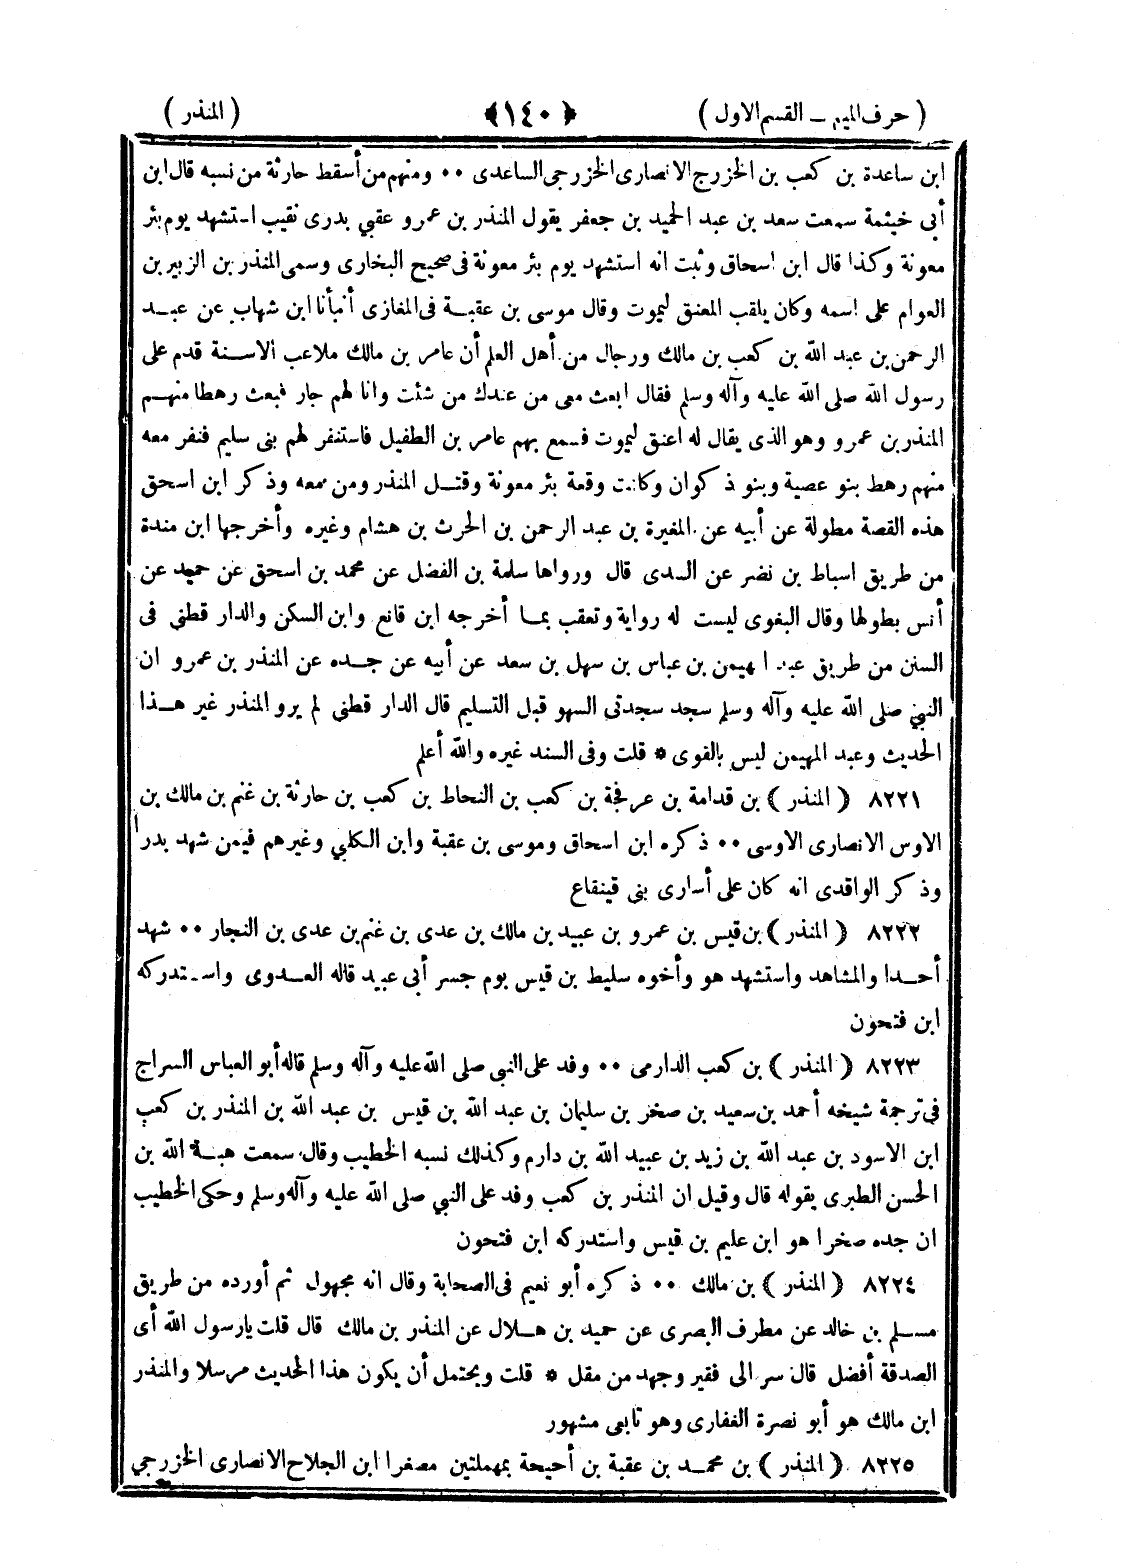 ( حرف الميم ـ القسم الاول ) ﴿ ١٤٠ ﴾ ( المنذر )
ابن ساعدة بن كعب بن الخزرج الانصارى الخزرجى الساعدى ٠٠ ومنهم من أسقط حارثة من نسبه قال ابن
أبى خيثمة سمعت سعد بن عبد الحميد بن جعفر يقول المنذر بن عمرو عقبي بدرى نقيب استشهد يوم بئر
معونة وكذا قال ابن اسحاق وثبت انه استشهد يوم بئر معونة فى صحيح البخارى وسمى المنذر بن الزبير بن
العوام على اسمه وكان يلقب المعنق ليموت وقال موسى بن عقبـة فى المغازى أنبأنا ابن شهاب عن عبـد
الرحمن بن عبد الله بن كعب بن مالك ورجال من أهل العلم أن عامر بن مالك ملاعب الاسنة قدم على
رسول الله صلى الله عليه وآله وسلم فقال ابعث معى من عندك من شئت وانا لهم جار فبعث رهطا منهـم
المنذر بن عمرو وهو الذى يقال له اعنق ليموت فسمع بهم عامر بن الطفيل فاستنفر لهم بنى سليم فنفر معه
منهم رهط بنو عصية وبنو ذكوان وكانت وقعة بئر معونة وقتـل المنذر ومن معه وذكر ابن اسحق
هذه القصة مطولة عن أبيه عن المغيرة بن عبد الرحمن بن الحرث بن هشام وغيره وأخرجها ابن مندة
من طريق اسباط بن نضر عن السدى قال ورواها سلمة بن الفضل عن محمد بن اسحق عن حميد عن
أنس بطولها وقال البغوى ليست له رواية وتعقب بمـا أخرجه ابن قانع وابن السكن والدار قطني فى
السنن من طريق عبد المهيمن بن عباس بن سهل بن سعد عن أبيه عن جـده عن المنذر بن عمرو ان
النبي صلى الله عليه وآله وسلم سجد سجدتى السهو قبل التسليم قال الدار قطنى لم يرو المنذر غير هـذا
الحديث وعبد المهيمن ليس بالقوى * قلت وفى السند غيره والله أعلم
٨٢٢١ ( المنذر ) بن قدامة بن عرفجة بن كعب بن النحاط بن كعب بن حارثة بن غنم بن مالك بن
الاوس الانصارى الاوسى ٠٠ ذكره ابن اسحاق وموسى بن عقبة وابن الكلبي وغيرهم فيمن شهد بدرا
وذكر الواقدى انه كان على أسارى بنى قينقاع
٨٢٢٢ ( المنذر ) بن قيس بن عمرو بن عبيد بن مالك بن عدى بن غنم بن عدى بن النجار ٠٠ شهد
أحـدا والمشاهد واستشهد هو وأخوه سليط بن قيس يوم جسر أبى عبيد قاله العـدوى واستدركه
ابن فتحون
٨٢٢٣ ( المنذر ) بن كعب الدارمى ٠٠ وفد على النبي صلى الله عليه وآله وسلم قاله أبو العباس السراج
فى ترجمة شيخه أحمد بن سعيد بن صخر بن سليمان بن عبد الله بن قيس بن عبد الله بن المنذر بن كعب
ابن الاسود بن عبد الله بن زيد بن عبيد الله بن دارم وكذلك نسبه الخطيب وقال سمعت هبـة الله بن
الحسن الطبرى يقوله قال وقيل ان المنذر بن كعب وفد على النبي صلى الله عليه وآله وسلم وحكى الخطيب
ان جده صخرا هو ابن عليم بن قيس واستدركه ابن فتحون
٨٢٢٤ ( المنذر ) بن مالك ٠٠ ذكره أبو نعيم فى الصحابة وقال انه مجهول ثم أورده من طريق
مسـلم بن خالد عن مطرف البصرى عن حميد بن هـلال عن المنذر بن مالك قال قلت يارسول الله أى
الصدقة أفضل قال سر الى فقير وجهد من مقل * قلت ويحتمل أن يكون هذا الحديث مرسلا والمنذر
ابن مالك هو أبو نصرة الغفارى وهو تابعى مشهور
٨٢٢٥ ( المنذر ) بن محمـد بن عقبة بن أحيحة بمهملتين مصغرا ابن الجلاح الانصارى الخزرجي